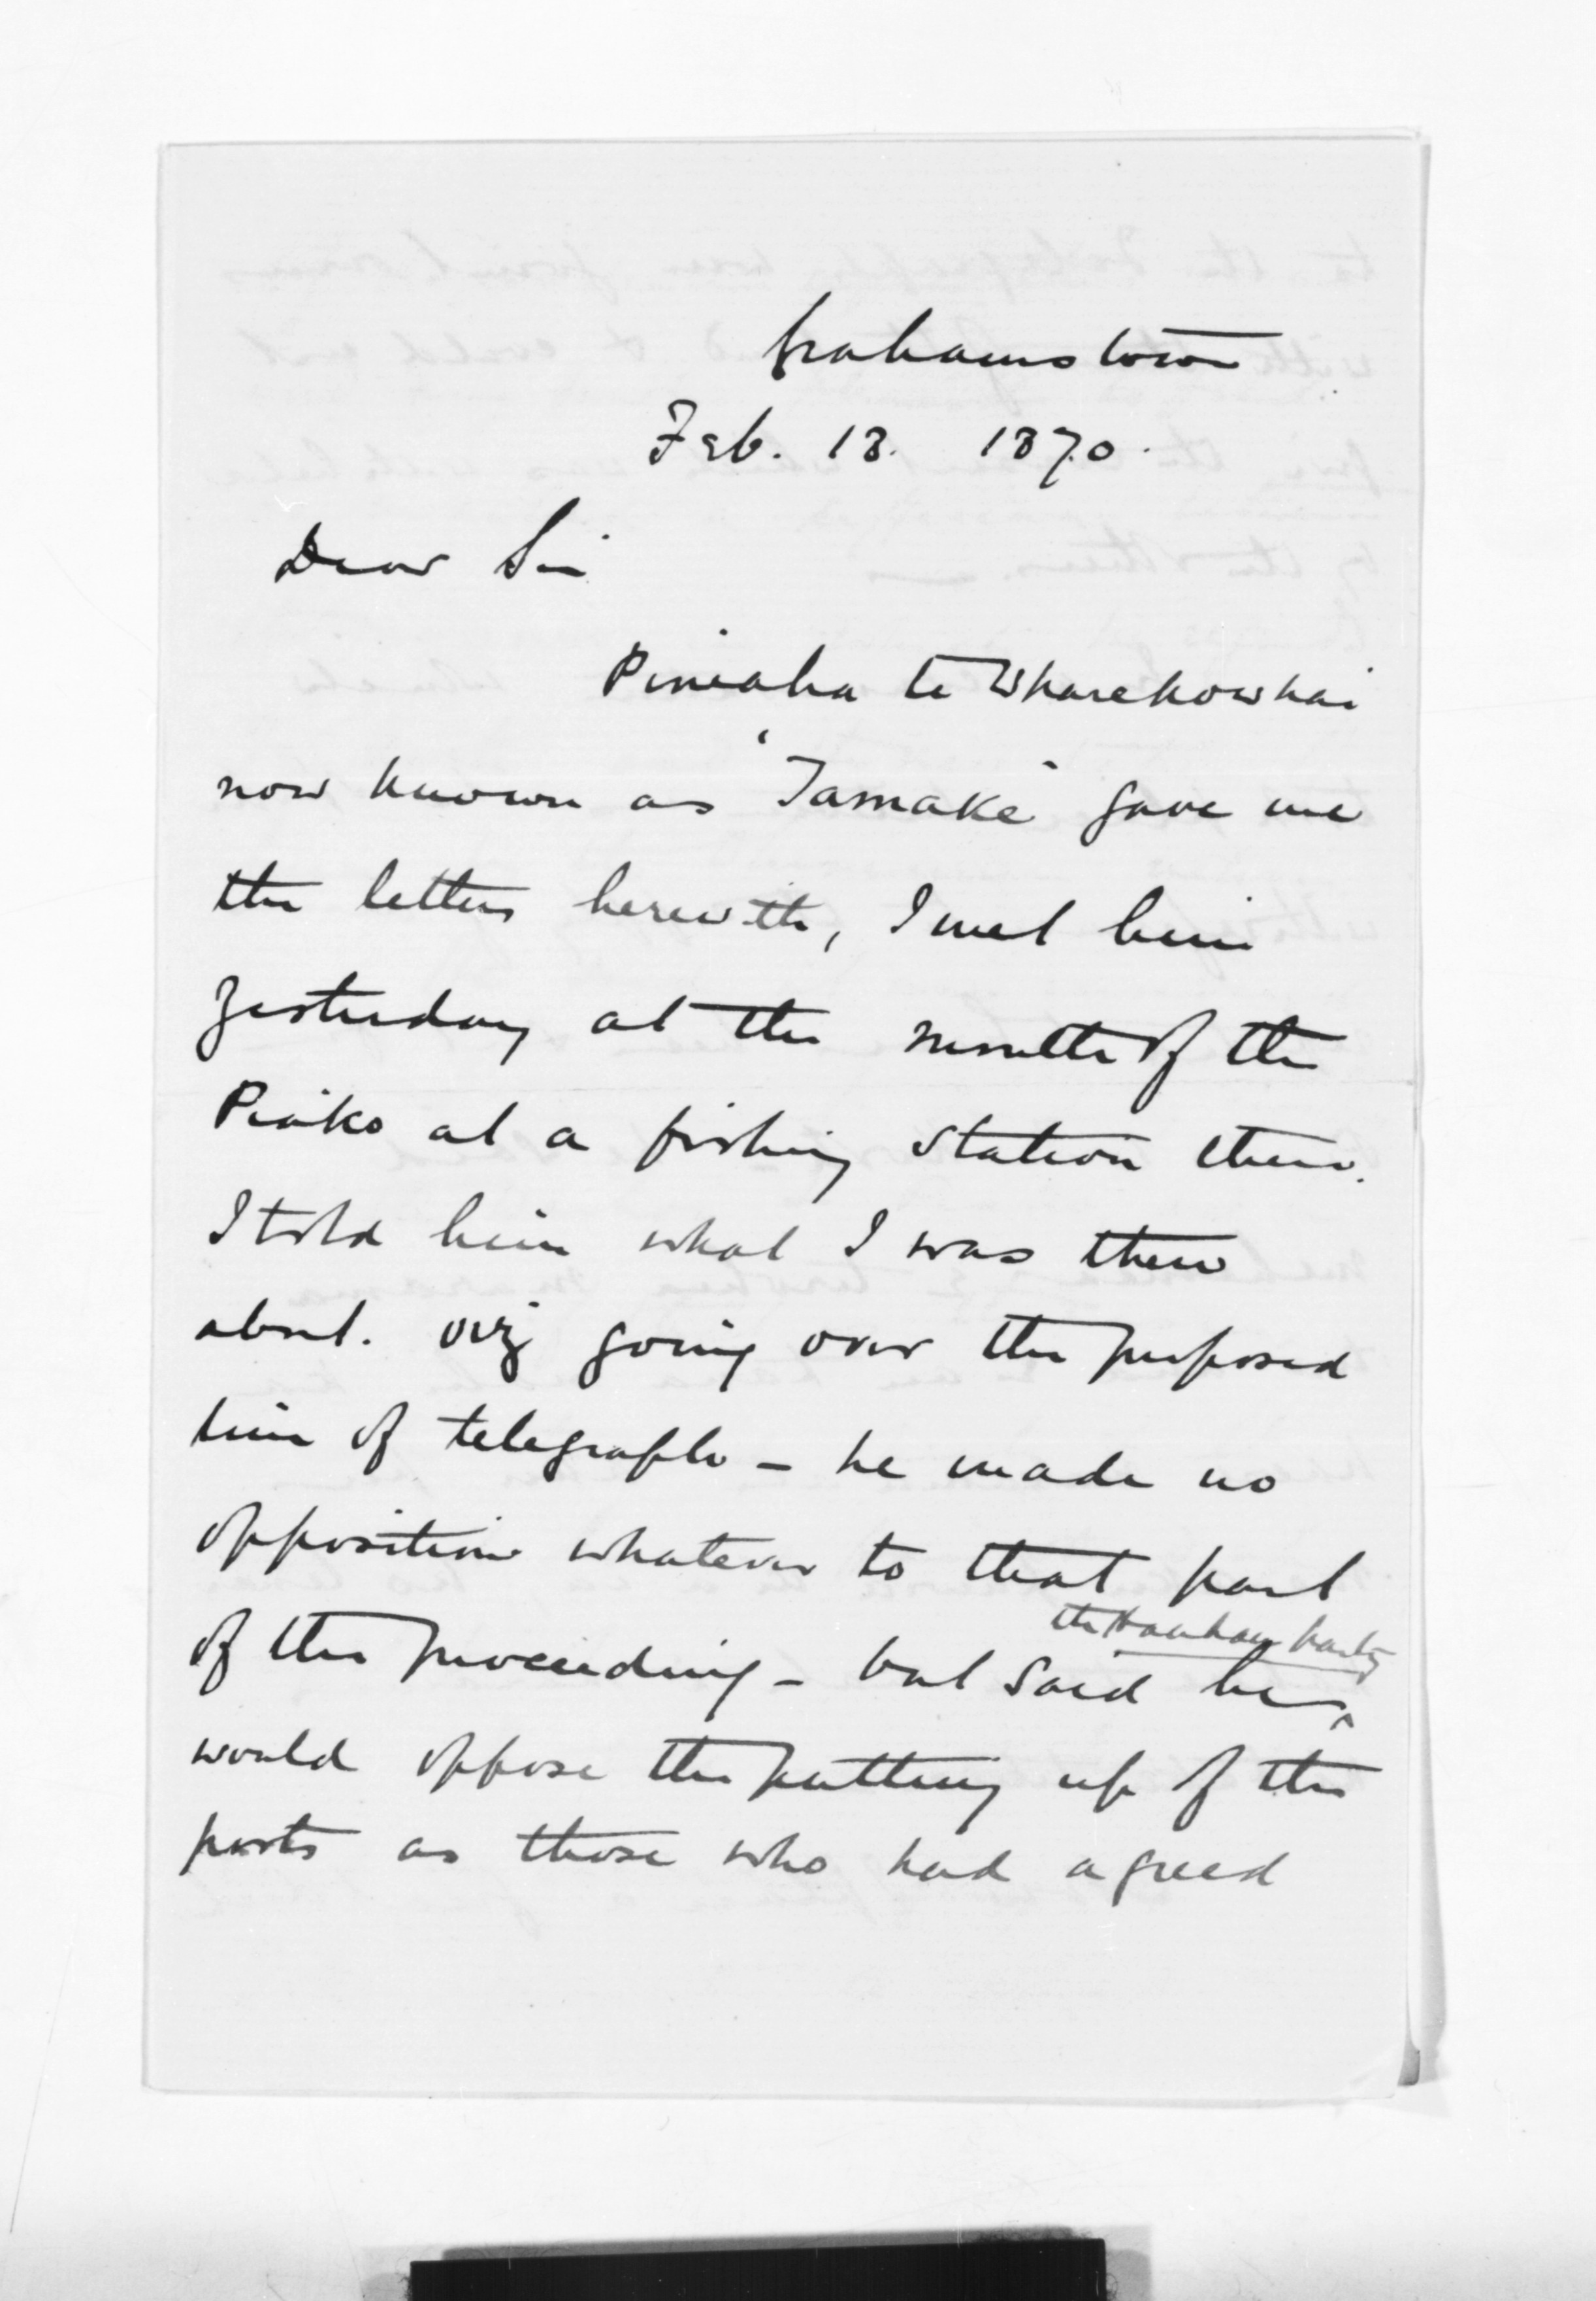 Grahamstown
Feb. 18. 1870.
Dear Sir
Pineaha te Wharekowhai
now known as 'Tamake' gave me
the letters herewith, I met him
yesterday at the mouth of the
Piako at a fishing station there.
I told him what I was there
about. viz going over the proposed
line of telegraph - he made no
opposition whatever to that part
the Hauhau party
of the proceeding - but said he
would oppose the putting up of the
posts as those who had agreed